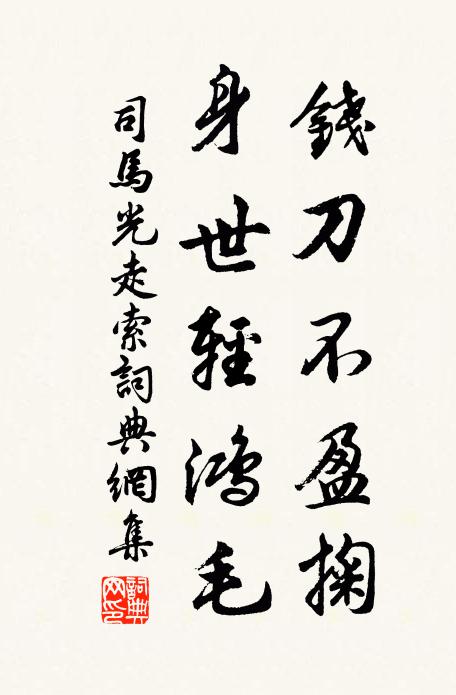 錢刀不盈掬
身世輕鴻毛
司馬光走索詞典網集
詞典網印